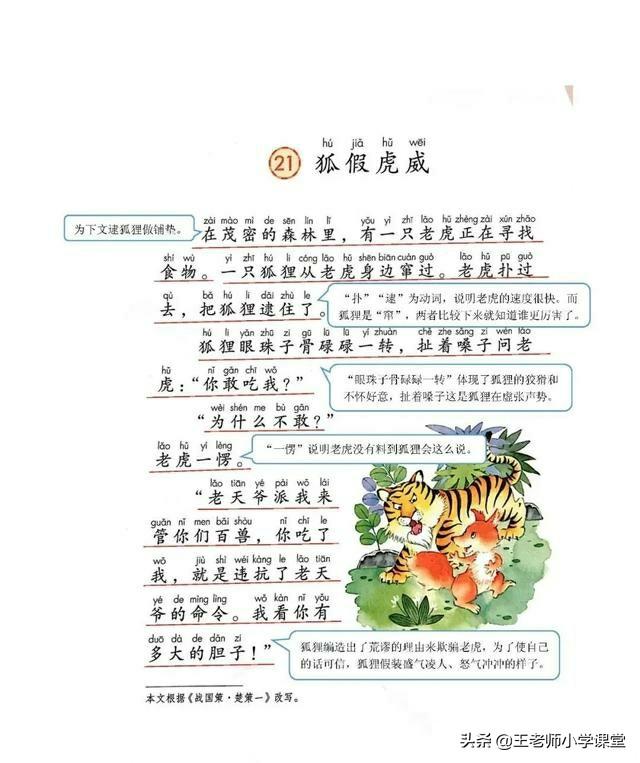 hú jiǎ hǔ wēi
21 狐假虎威
zài mào mì de sēn lín lǐ yǒu yì zhī lǎo hǔ zhèng zài xún zhǎo
为下文逮狐狸做铺垫。
在茂密的森林里，有一只老虎正在寻找
shí wù yì zhī hú li cóng lǎo hǔ shēn biān cuàn guò lǎo hǔ pū guò
食物。一只狐狸从老虎身边窜过。老虎扑过
qù bǎ hú li dǎi zhù le
去，把狐狸逮住了。
“扑”“逮”为动词，说明老虎的速度很快。而
狐狸是“窜”，两者比较下来就知道谁更厉害了。
hú li yǎn zhū zi gū lū lū yí zhuàn chě zhe sǎng zi wèn lǎo
狐狸眼珠子骨碌碌一转，扯着嗓子问老
hǔ nǐ gǎn chī wǒ
虎：“你敢吃我？”
“眼珠子骨碌碌一转”体现了狐狸的狡猾和
不怀好意，扯着嗓子这是狐狸在虚张声势。
wèi shén me bù gǎn
“为什么不敢？”
lǎo hǔ yí lèng
老虎一愣。
“一愣”说明老虎没有料到狐狸会这么说。
lǎo tiān yé pài wǒ lái
“老天爷派我来
guǎn nǐ men bǎi shòu nǐ chī le
管你们百兽，你吃了
wǒ jiù shì wéi kàng le lǎo tiān
我，就是违抗了老天
yé de mìng lìng wǒ kàn nǐ yǒu
爷的命令。我看你有
duō dà de dǎn zi
多大的胆子！”
狐狸编造出了荒谬的理由来欺骗老虎，为了使自己
的话可信，狐狸假装盛气凌人、怒气冲冲的样子。
本文根据《战国策·楚策一》改写。
头条 @王老师小学课堂